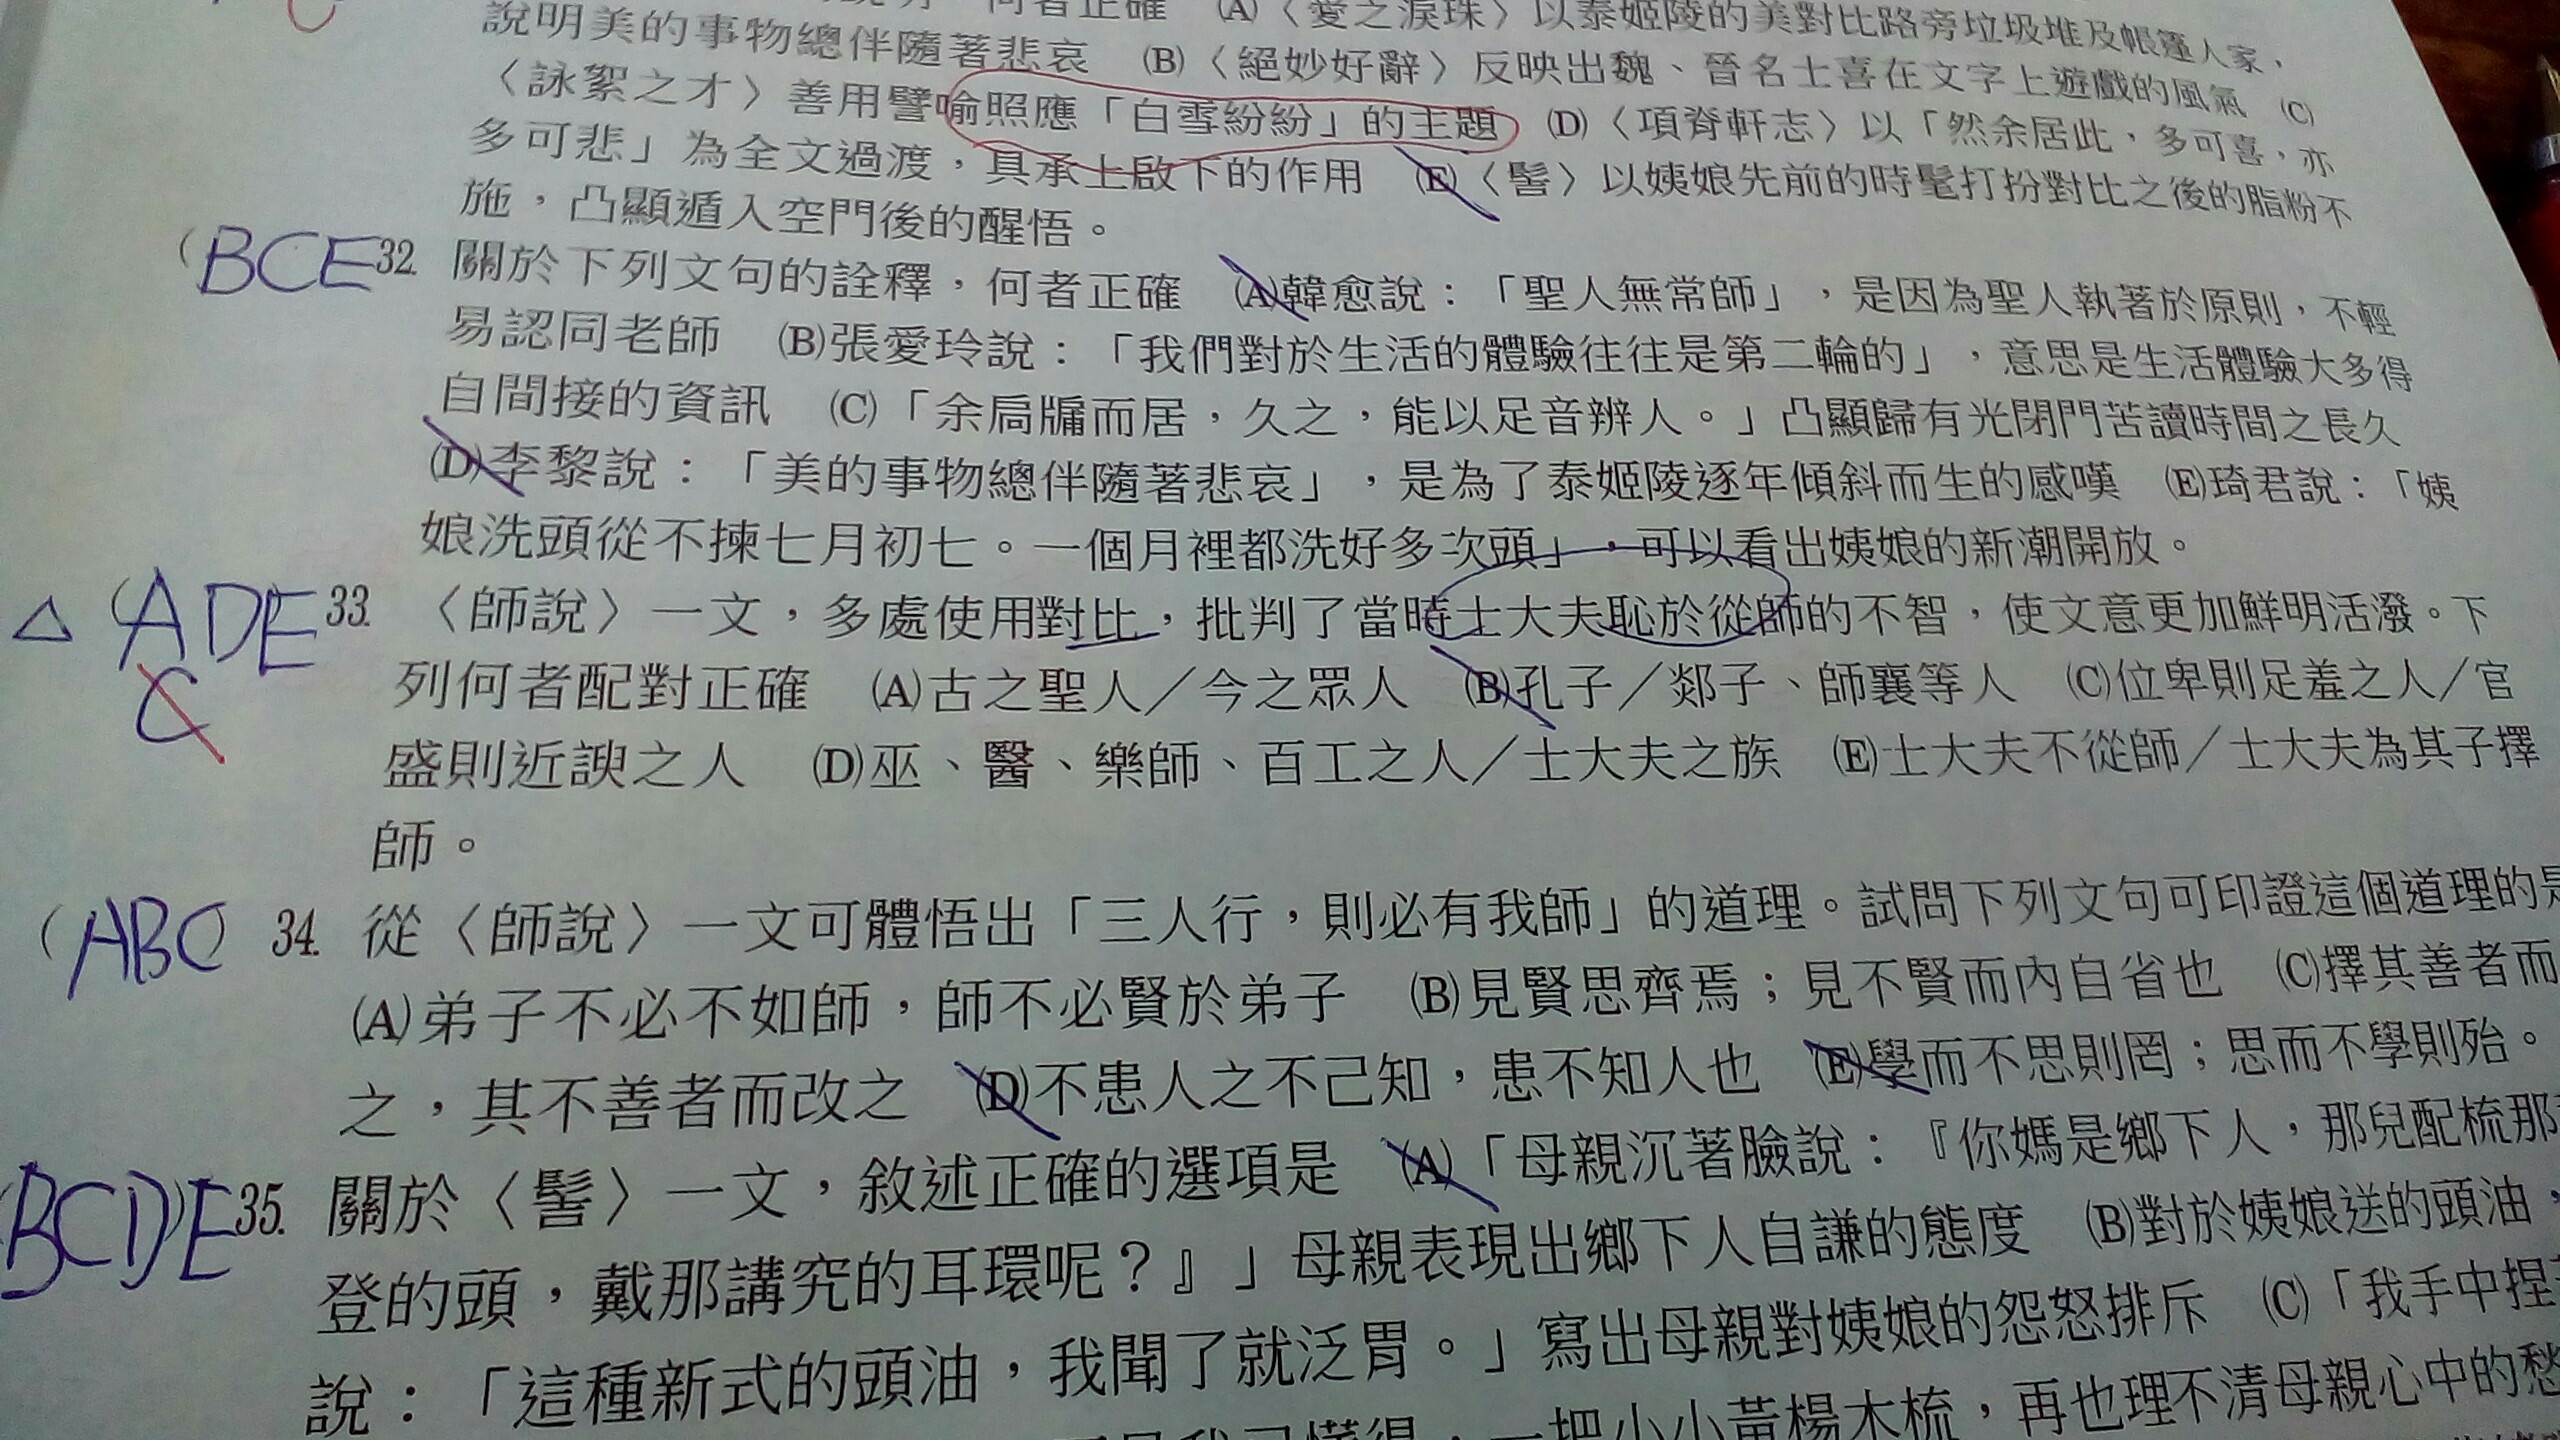 何者正確 (A)〈愛之淚珠〉以泰姬陵的美對比路旁垃圾堆及帳篷人家，
說明美的事物總伴隨著悲哀 (B)〈絕妙好辭〉反映出魏、晉名士喜在文字上遊戲的風氣 (C)
〈詠絮之才〉善用譬喻照應「白雪紛紛」的主題 (D)〈項脊軒志〉以「然余居此，多可喜，亦
多可悲」為全文過渡，具承上啟下的作用 (E)〈髻〉以姨娘先前的時髦打扮對比之後的脂粉不
施，凸顯遁入空門後的醒悟。
(BCE 32. 關於下列文句的詮釋，何者正確 (A)韓愈說：「聖人無常師」，是因為聖人執著於原則，不輕
易認同老師 (B)張愛玲說：「我們對於生活的體驗往往是第二輪的」，意思是生活體驗大多得
自間接的資訊 (C)「余扃牖而居，久之，能以足音辨人。」凸顯歸有光閉門苦讀時間之長久
(D)李黎說：「美的事物總伴隨著悲哀」，是為了泰姬陵逐年傾斜而生的感嘆 (E)琦君說：「姨
娘洗頭從不揀七月初七。一個月裡都洗好多次頭」，可以看出姨娘的新潮開放。
△ (ADE 33. 〈師說〉一文，多處使用對比，批判了當時士大夫恥於從師的不智，使文意更加鮮明活潑。下
C
列何者配對正確 (A)古之聖人／今之眾人 (B)孔子／郯子、師襄等人 (C)位卑則足羞之人／官
盛則近諛之人 (D)巫、醫、樂師、百工之人／士大夫之族 (E)士大夫不從師／士大夫為其子擇
師。
(ABC) 34. 從〈師說〉一文可體悟出「三人行，則必有我師」的道理。試問下列文句可印證這個道理的是
(A)弟子不必不如師，師不必賢於弟子 (B)見賢思齊焉；見不賢而內自省也 (C)擇其善者而
之，其不善者而改之 (D)不患人之不己知，患不知人也 (E)學而不思則罔；思而不學則殆。
BCD)E 35. 關於〈髻〉一文，敘述正確的選項是 (A)「母親沉著臉說：『你媽是鄉下人，那兒配梳那
登的頭，戴那講究的耳環呢？』」母親表現出鄉下人自謙的態度 (B)對於姨娘送的頭油，
說：「這種新式的頭油，我聞了就泛胃。」寫出母親對姨娘的怨怒排斥 (C)「我手中捏
一把小小黃楊木梳，再也理不清母親心中的愁